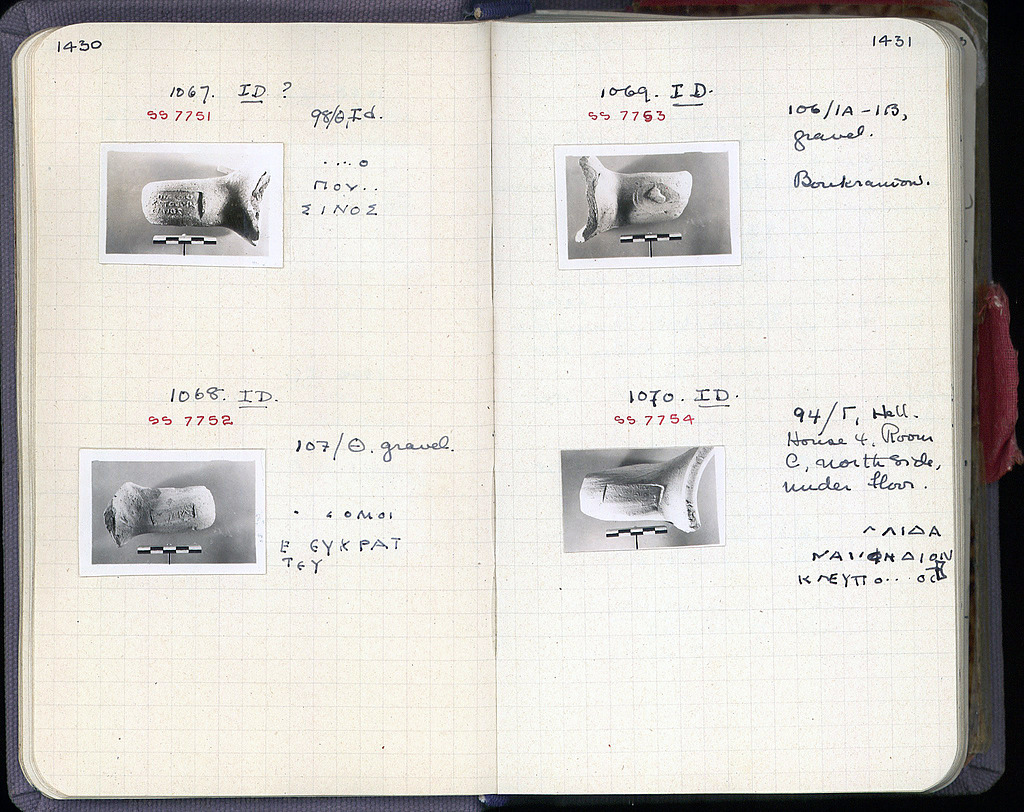 1430
1067. ID ?
SS 7751
98/Θ, Id.
....Ο
ΠΟΥ..
ΣΙΝΟΣ
1068. ID.
SS 7752
107/Θ. gravel.
ΟΜΟΙ
Ε ЄΥΚΡΑΤ
ΤЄΥ
1431
1069. ID.
SS 7753
106/ΙΑ-ΙΒ,
gravel.
Boukranion.
1070. ID.
SS 7754
94/Γ, Hell.
House 4, Room
C, north side,
under floor.
ΛΙΔΑ
ΚΛΕΥΠΟ...